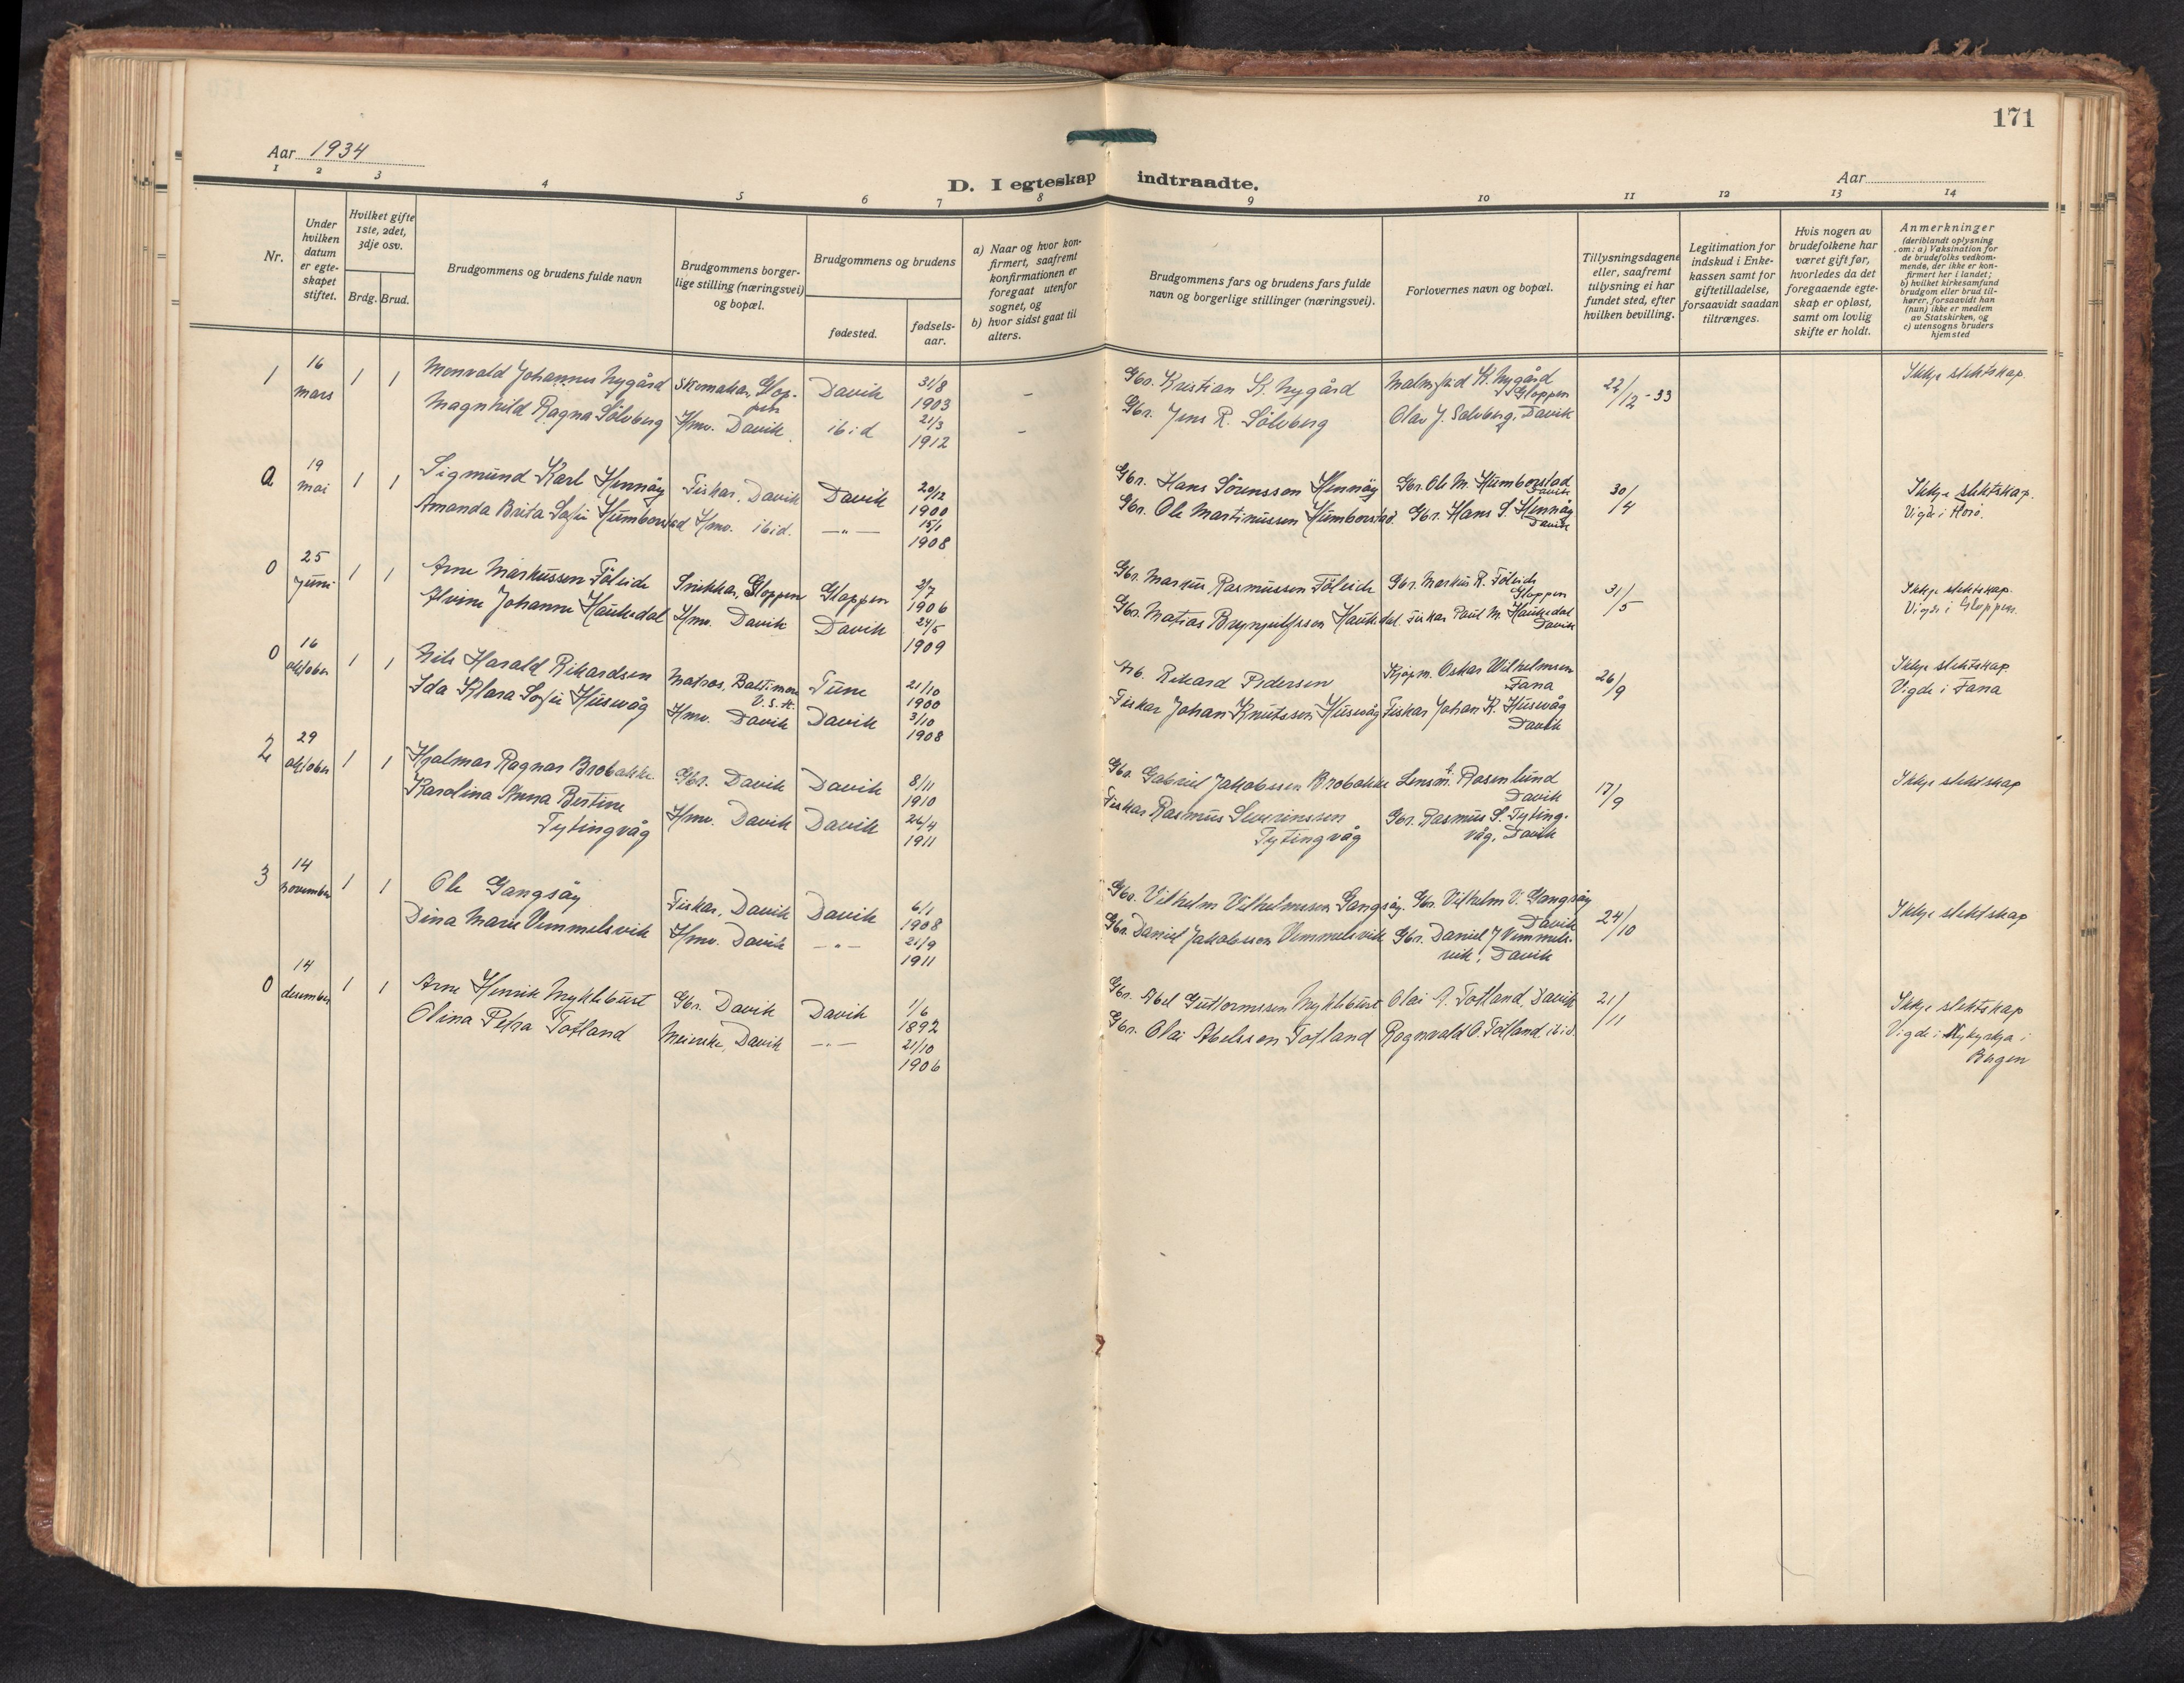 171
Aar 1934
D. I egteskap indtraadte.
Aar
1 2 3 4 5 6 7 8 9 10 11 12 13 14
Nr.
Under
hvilken
datum
er egte-
skapet
stiftet.
Hvilket gifte
1ste, 2det,
3dje osv.
Brdg. Brud.
Brudgommens og brudens fulde navn
Brudgommens borger-
lige stilling (næringsvei)
og bopæl.
Brudgommens og brudens
fødested.
fødsels-
aar.
a) Naar og hvor kon-
firmert, saafremt
konfirmationen er
foregaat utenfor
sognet, og
b) hvor sidst gaat til
alters.
Brudgommens fars og brudens fars fulde
navn og borgerlige stillinger (næringsvei).
Forlovernes navn og bopæl.
Tillysningsdagene
eller, saafremt
tillysning ei har
fundet sted, efter
hvilken bevilling.
Legitimation for
indskud i Enke-
kassen samt for
giftetilladelse,
forsaavidt saadan
tiltrænges.
Hvis nogen av
brudefolkene har
været gift før,
hvorledes da det
foregaaende egte-
skap er opløst,
samt om lovlig
skifte er holdt.
Anmerkninger
(deriblandt oplysning
om: a) Vaksination for
de brudefolks vedkom-
mende, der ikke er kon-
firmert her i landet;
b) hvilket kirkesamfund
brudgom eller brud til-
hører, forsaavidt han
(hun) ikke er medlem
av Statskirken, og
c) utensogns bruders
hjemsted
1 16 mars 1 1 Monvald Johannes Nygård Skomakar, Glop-
pen Davik 31/8 1903 - Gbr. Kristian K. Nygård Malm K. Nygård
Gloppen 22/2 - 33 Ikkje slektskap.
Magnhild Ragna Sölvberg Hmv. Davik. ibid 21/3 1912 - Gbr. Jens R. Sölvberg Olav J. Solvberg, Davik
0 19 mai 1 1 Sigmund Karl Hennöy Fiskar, Davik Davik 20/12 1900 Gbr. Hans Sörensson Hennöy Gbr. Ole M. Humborstad
Davik 30/4 Ikkje slektskap.
Amanda Brita Sofie Humborstad Hmv. ibid. -"- 15/1 1908 Gbr. Ole Martinussen Humborstad. Gbr. Hans S. Hennöy
Davik Vigde i Florö.
0 25 Juni 1 1 Arne Markussen Föleide Snikkar, Gloppen Gloppen 2/7 1906 Gbr. Markus Rasmussen Föleide Gbr. Markus R. Föleide
Gloppen 31/5 Ikkje slektskap.
Alvine Johanne Haukedal Hmv. Davik Davik 24/5 1909 Gbr. Matias Brynjulfssen Haukedal. Fiskar Paul M. Haukedal
Davik Vigde i Gloppen.
0 16 oktober 1 1 Nils Harald Rikardsen Matros, Baltimore
U.S.A. Tune 21/10 1900 Arb. Rikard Pedersen Kjøpm. Oskar Wilhelmsen
Fana 26/9 Ikkje slektskap
Ida Klara Sofie Husevåg Hmv. Davik Davik 3/10 1908 Fiskar Johan Knutsson Husevåg Fiskar Johan K. Husevåg
Davik Vigde i Fana
2 29 oktober 1 1 Hjalmar Ragnar Brobakke Gbr. Davik Davik 8/11 1910 Gbr. Gabriel Jakobssen Brobakke Lensm. Rosenlund
Davik 17/9 Ikkje slektskap
Karolina Anna Bertine
Tytingvåg Hmv. Davik Davik 26/4 1911 Fiskar Rasmus Severinssen
Tytingvåg Gbr. Rasmus S. Tyting-
våg, Davik
3 14 november 1 1 Ole Gangsöy Fiskar, Davik Davik 6/1 1908 Gbr. Vilhelm Vilhelmssen Gangsöy. Gbr. Vilhelm V. Gangsöy
Davik 24/10 Ikkje slektskap
Dina Marie Vemmelsvik Hmv. Davik -"- 21/9 1911 Gbr. Daniel Jakobsson Vemmelsvik Gbr. Daniel J Vemmels-
vik, Davik
0 14 desember 1 1 Arne Henrik Myklebust Gbr. Davik Davik 1/6 1892 Gbr. Abel Guttormssen Myklebust Olai A. Totland, Davik 21/11 Ikkje slektskap
Olina Petra Totland Meierske, Davik -"- 21/10 1906 Gbr. Olai Abelssen Totland Ragnvald O. Totland ibid. Vigde i Nykyrkja i
Bergen